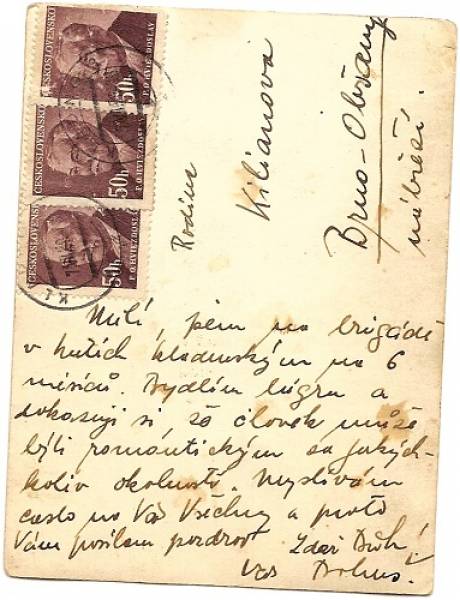 ČESKOSLOVENSKO
50h
P.O.HVIEZDOSLAV
ČESKOSLOVENSKO
50h
P.O.HVIEZDOSLAV
ČESKOSLOVENSKO
50h
P.O.HVIEZDOSLAV
Rodina
Kilianova
Brno-Obřany
nábřeží.
Milí, jsem na brigádě
v hutích kladenských na 6
měsíců. Bydlím a
dokazuji si, že člověk může
býti romantickým za jakých-
koliv okolností. Myslívám
často na Vás Všechny a proto
Vám posílam pozdrav Zdař Bůh!
Vás